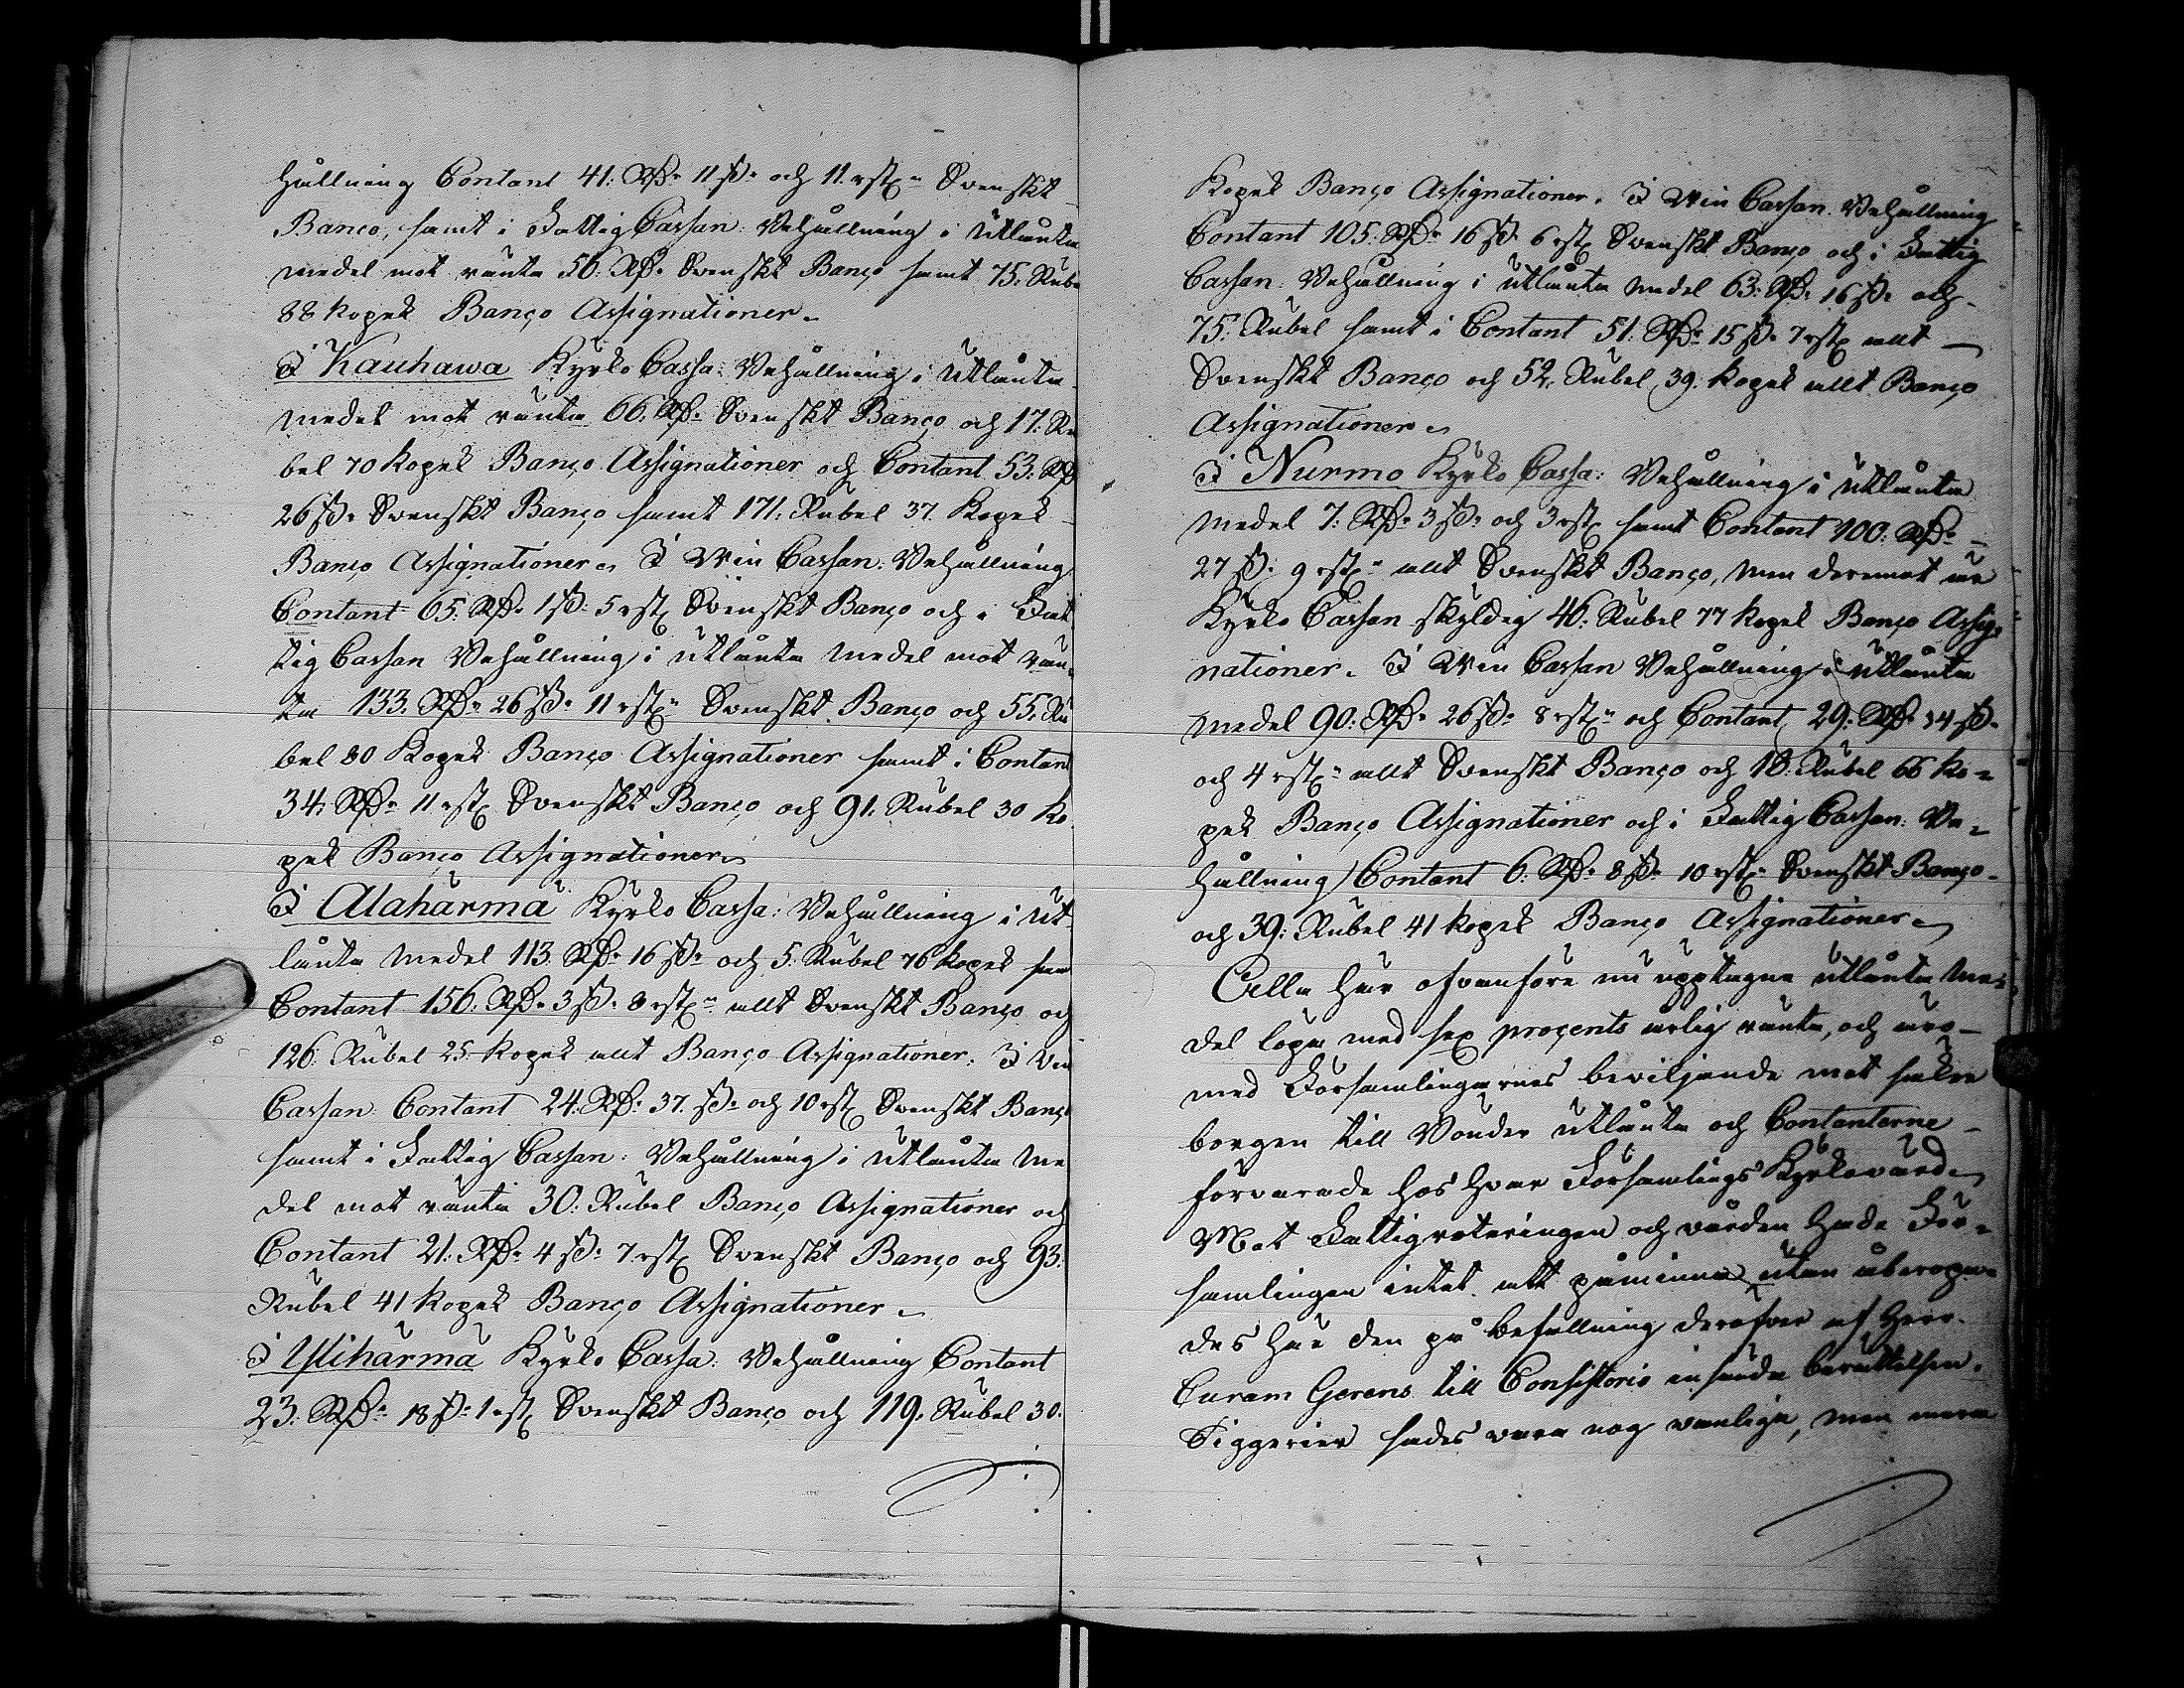 hållning Contant 41: Rd: 11 ß: och 11 rst: Svenskt
Banco, samt i Fattig Cassan: Behållning i Utlånta
medel mot ränta 56: Rd: Svenskt Banço samt 75: Rube
88 kopek Banço Assignationer.
I Kauhawa Kyrko Cassa: Behållning i Utlånta
medel mot ränta 66: Rd: Svenskt Banço och 17: Ru
bel 70 kopek Banço Assignationer och Contant 53: Rd
26 ß: Svenskt Banço samt 171: Rubel 37. Kopek
Banço Assignationer. I Win Cassan: Behållning
Contant 65: Rd: 1 ß: 5 rst: Svenskt Banço och i Fat
tig Cassan Behållning i utlånta medel mot rän-
ta 133: Rd: 26 ß: 11 rst: Svenskt Banço och 55: Ru
bel 80 Kopek Banço Assignationer samt i Contant
34: Rd: 11 rst: Svenskt Banço och 91: Rubel 30 ko
pek Banço Assignationer
I Alahärmä Kyrko Cassa: Behållning i Ut-
lånta medel 113: Rd: 16 ß: och 5: Rubel 76 kopek sam
Contant 156: Rd: 3 ß: 8 rst: allt Svenskt Banço och
126: Rubel 25 kopek allt Banço Assignationer. I Vin
Cassan: Contant 24: Rd: 37. ß: och 10 rst: Svenskt Banço
samt i Fattig Cassan: Behållning i Utlånta me
del mot ränta 30: Rubel Banço Assignationer och
Contant 21: Rd: 4 ß: 7 rst: Svenskt Banço och 93:
Rubel 41 kopek Banço Assignationer.
I Ylihärmä Kyrko Cassa: Behållning Contant
23: Rd: 18 ß: 1 rst: Svenskt Banço och 119: Rubel 30:
Kopek Banço Assignationer. I Win Cassan: Behållning
Contant 105: Rd: 16 ß: 6 rst: Svenskt Banço och i Fattig
Cassan: Behållning i utlånta medel 63: Rd: 16 ß: och
75: Rubel samt i Contant 51: Rd: 15 ß: 7 rst: allt
Svenskt Banço och 52: Rubel 39. kopek allt Banço
Assignationer
I Nurmo Kyrko Cassa: Behållning i utlånta
medel 7: Rd: 3 ß: och 3 rst: samt Contant 100: Rd:
27 ß: 9 rst: allt Svenskt Banço, men deremot är
Kyrko Cassan skyldig 46: Rubel 77 kopek Banço Assig-
nationer. I Win Cassan Behållning i utlånta
medel 90: Rd: 26 ß: 8 rst: och Contant 29: Rd: 34 ß:
och 4 rst: allt Svenskt Banço och 18: Rubel 66 ko-
pek Banço Assignationer och i Fattig Cassan: Be-
hållning Contant 6: Rd: 8 ß: 10 rst: Svenskt Banço
och 39: Rubel 41 kopek Banço Assignationer
Alla här ofvanföre nu upptagne utlånta me-
del löpa med sex proçents årlig ränta, och äro
med Församlingarnes beviljande mot säker
borgen till Bönder utlånta och Contanterne
förvarade hos hvar Församlings Kyrkovärd
Mot Fattigroteringen och vården hade För-
samlingen intet att påminna utan åberopa-
des här den på befallning derofver af Herr
Curam Gerens till Consistorio insända berättelsen.
Tiggerier sades vara nog vanliga, men mera